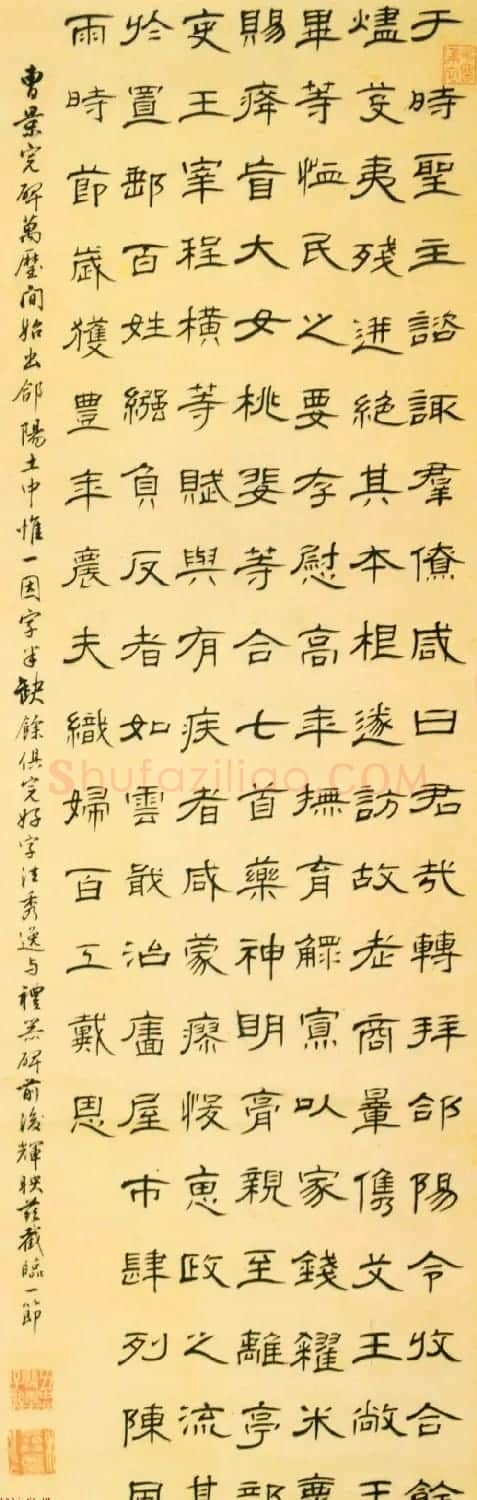 于時聖主諮諏羣僚咸曰君哉轉拜郃陽令收合餘
燼芟夷殘迸絕其本根遂訪故老商量儁艾王敞王
畢等恤民之要存慰高年撫育鰥寡以家錢糴米粟
賜癃盲大女桃婓等合七首藥神明膏親至離亭部
吏王宰程橫等賦與有疾者咸蒙瘳悛惠政之流甚
於置郵百姓繦負反者如雲戢治廧屋市肆列陳風
雨時節歲獲豊年農夫織婦百工戴恩
曹景完碑萬曆間始出郃陽土中惟一因字半缺餘俱完好字法秀逸与禮器碑前後輝映茲截臨一節
Shufaziliao.COM